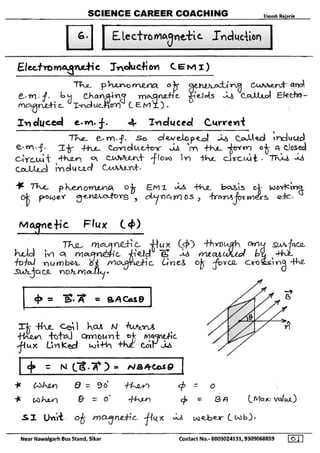 SCIENCE CAREER COACHING
Eknath Rajarie
6. Electromagnetic Induction
Electromagnetic Induction (EMI)
The phenomena of generating current and
e.m.f. by changing magnetic fields is called Electro-
magnetic Induction (EMI).
Induced e.m.f. & Induced Current
The e.m.f. so developed is called induced
e.m.f. If the conductor is in the form of a closed
circuit then a current flow in the circuit. This is
called induced current.
* The phenomena of EMI is the basis of working
of power generators, dynamos, transformers etc.
Magnetic Flux (ϕ)
The magnetic flux (ϕ) through any surface
held in a magnetic field B is measured by the
total number of magnetic lines of force crossing the
surface normally.
ϕ = B⃗.A⃗ = BA Cosθ
If the coil has N turns
then total amount of magnetic
flux linked with the coil is
ϕ = N(B⃗.A⃗) = NBA Cosθ
B⃗
θ
n⃗
* when θ = 90° then ϕ = 0
* when θ = 0° then ϕ = BA (Max. value)
S.I Unit of magnetic flux is weber (wb).
Near Nawalgarh Bus Stand, Sikar
Contact No.- 8003024131, 9309068859
6.1